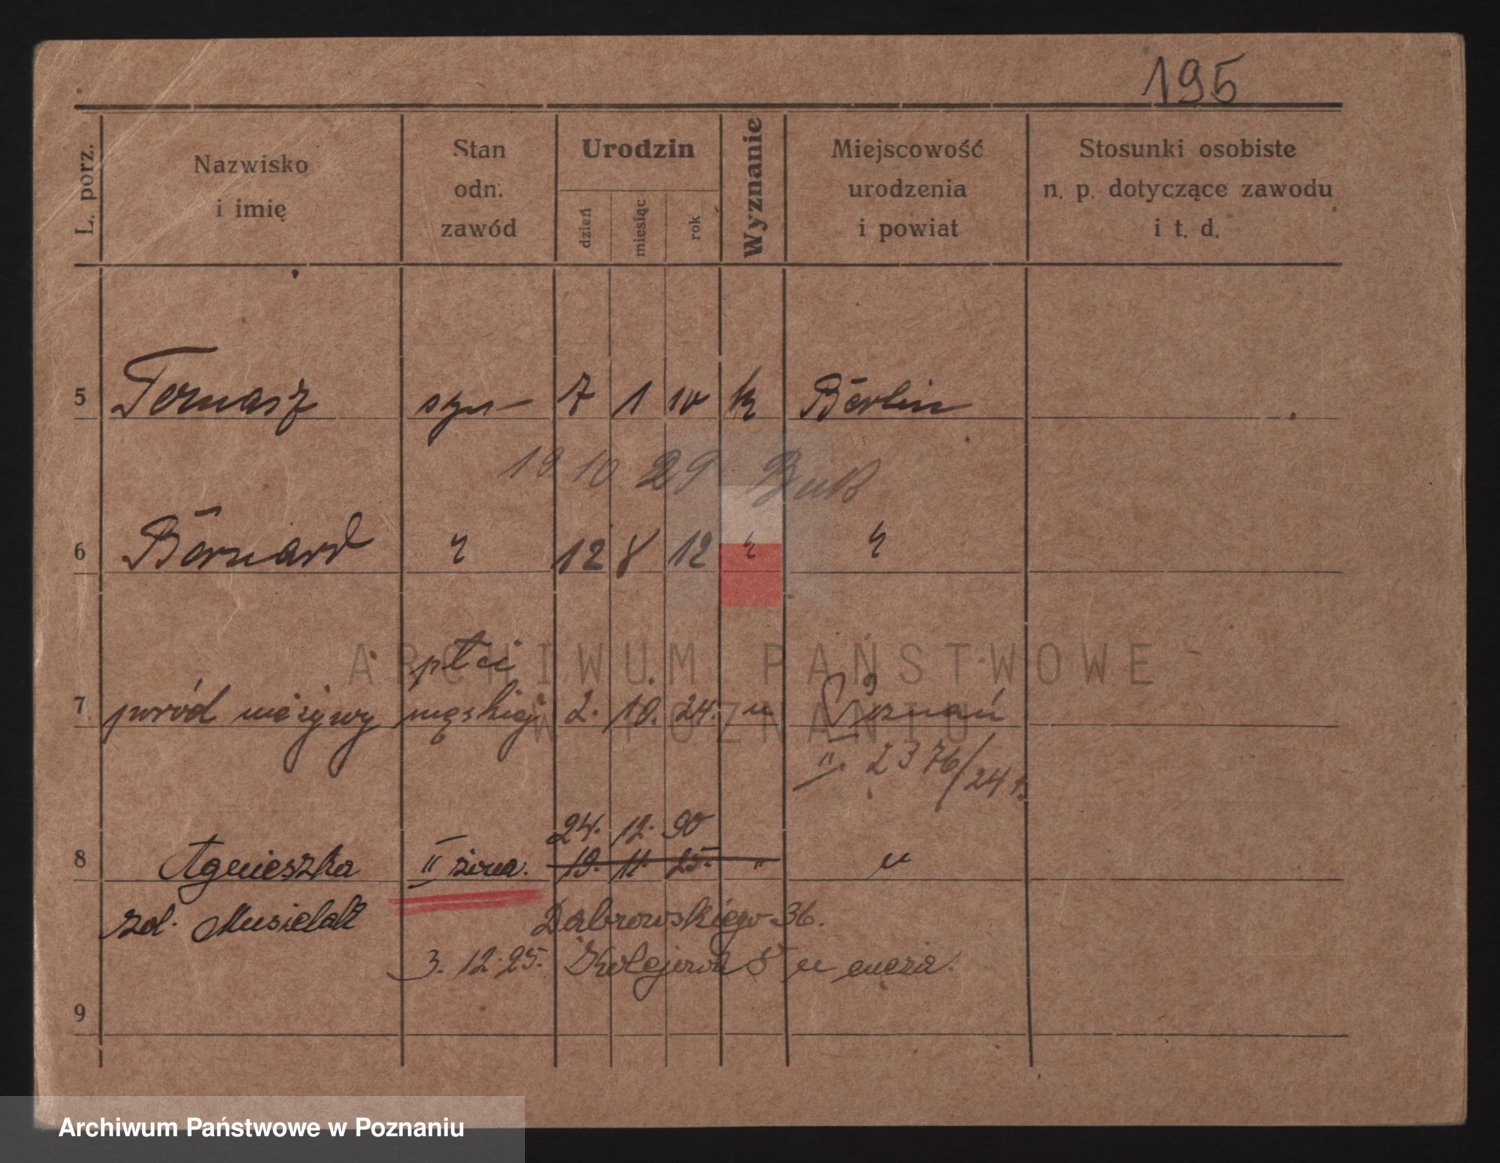 195
L. porz.
Nazwisko
i imię
Stan
odn.
zawód
Urodzin
dzień
miesiąc
rok
Wyznanie
Miejscowość
urodzenia
i powiat
Stosunki osobiste
n. p. dotyczące zawodu
i t. d.
5 Tomasz syn 7 1 10 k Berlin
19 10 29
6 Bernard " 12 8 12 " "
płci
7 poród nieżywy męskiej 2. 10. 24. " Poznań
" 2376/24
24. 12. 90
8 Agnieszka II żona. 19. 11. 25. " "
zd. Musielak Dąbrowskiego 36.
3. 12. 25. Kolejowa 5 u męża.
9
ARCHIWUM PAŃSTWOWE
W POZNANIU
Archiwum Państwowe w Poznaniu